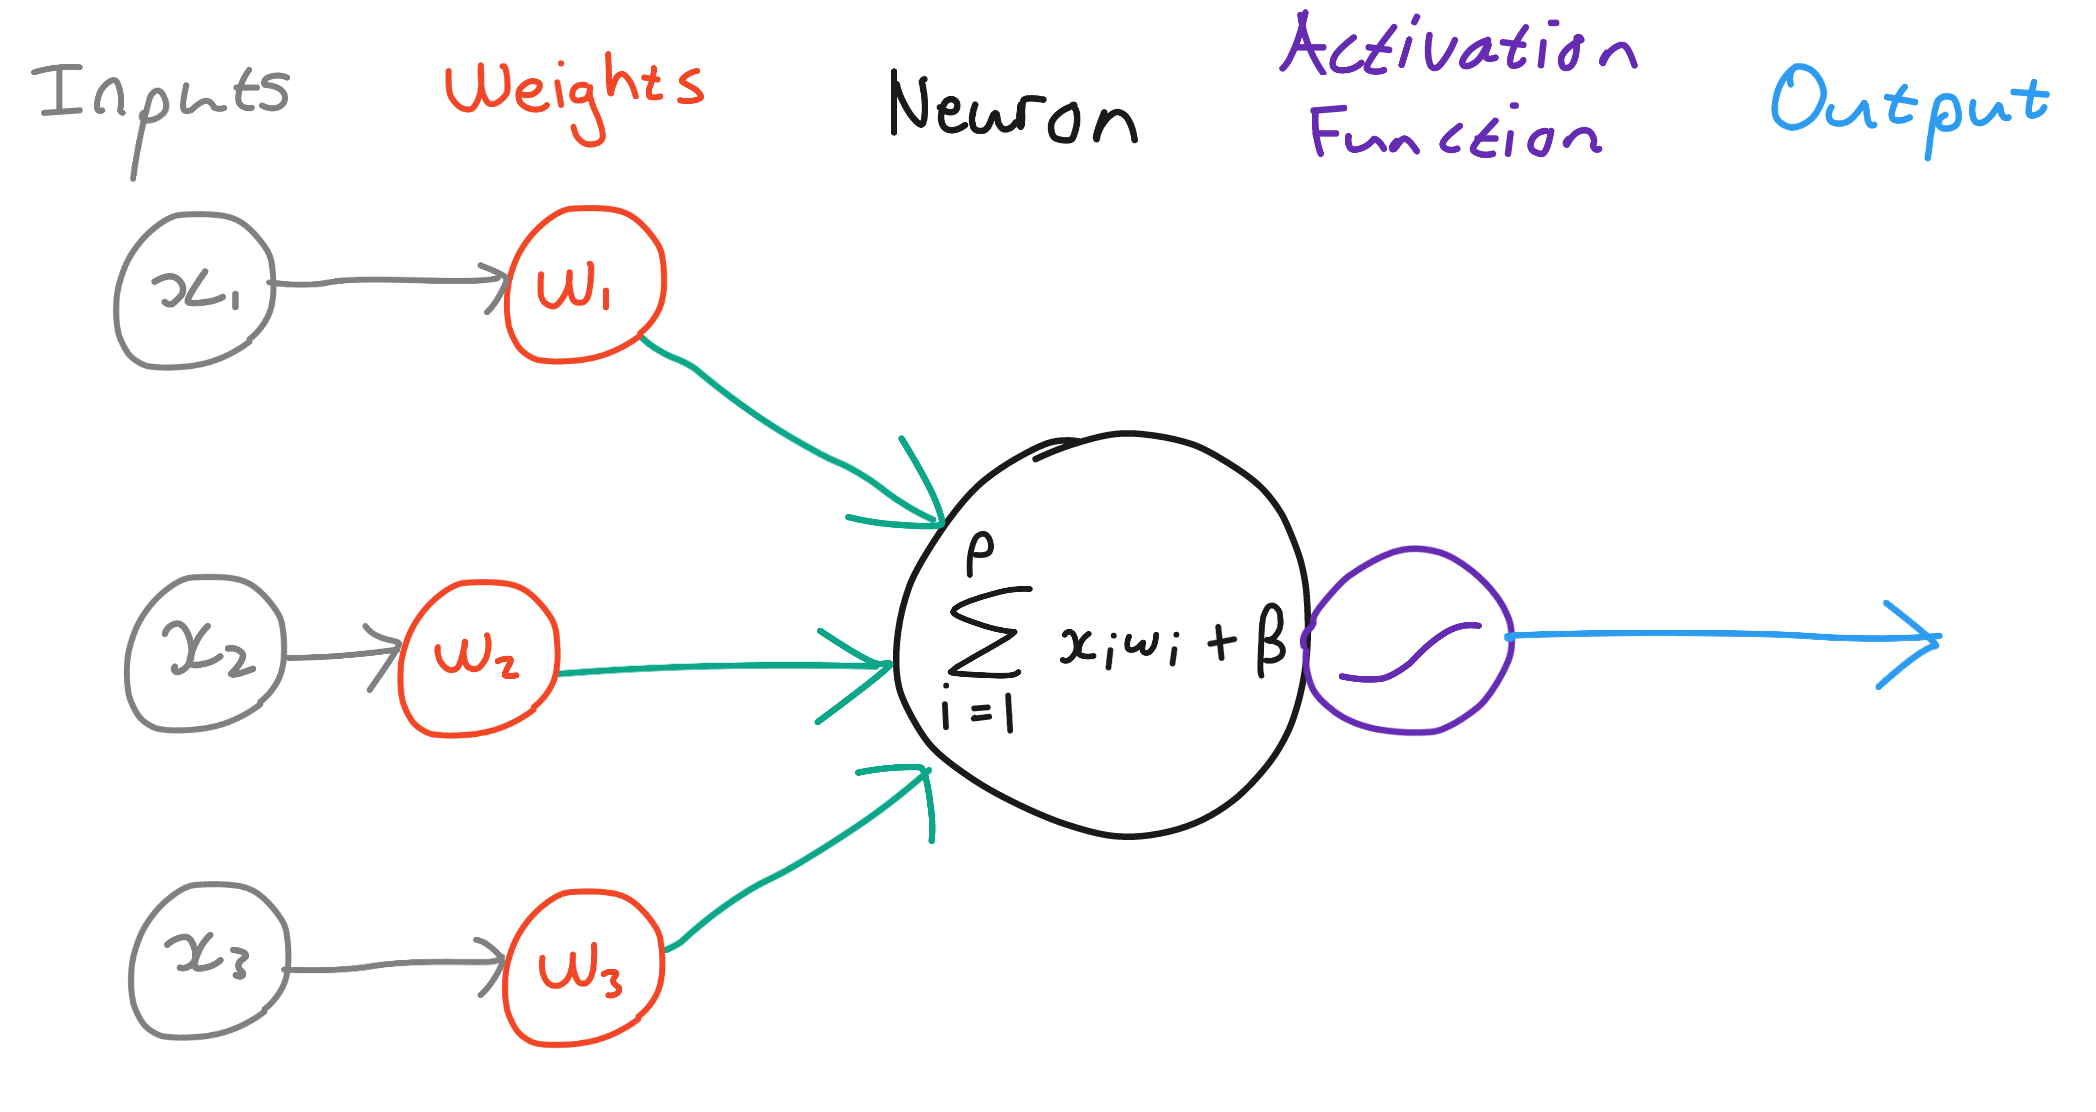 Inputs
Weights
Neuron
Activation
Function
Output
x₁
w₁
x₂
w₂
x₃
w₃
p
∑ xᵢwᵢ + β
i=1